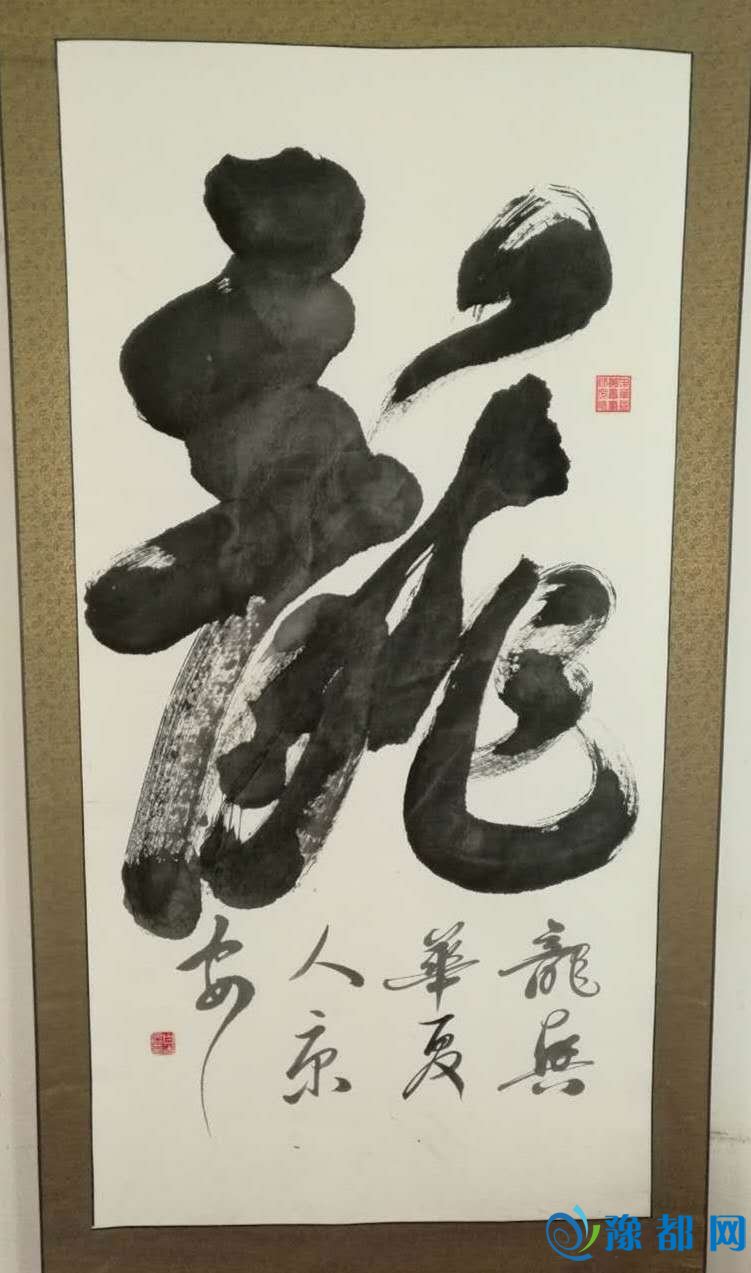 龍
龍興
華夏
人京
安
豫都网